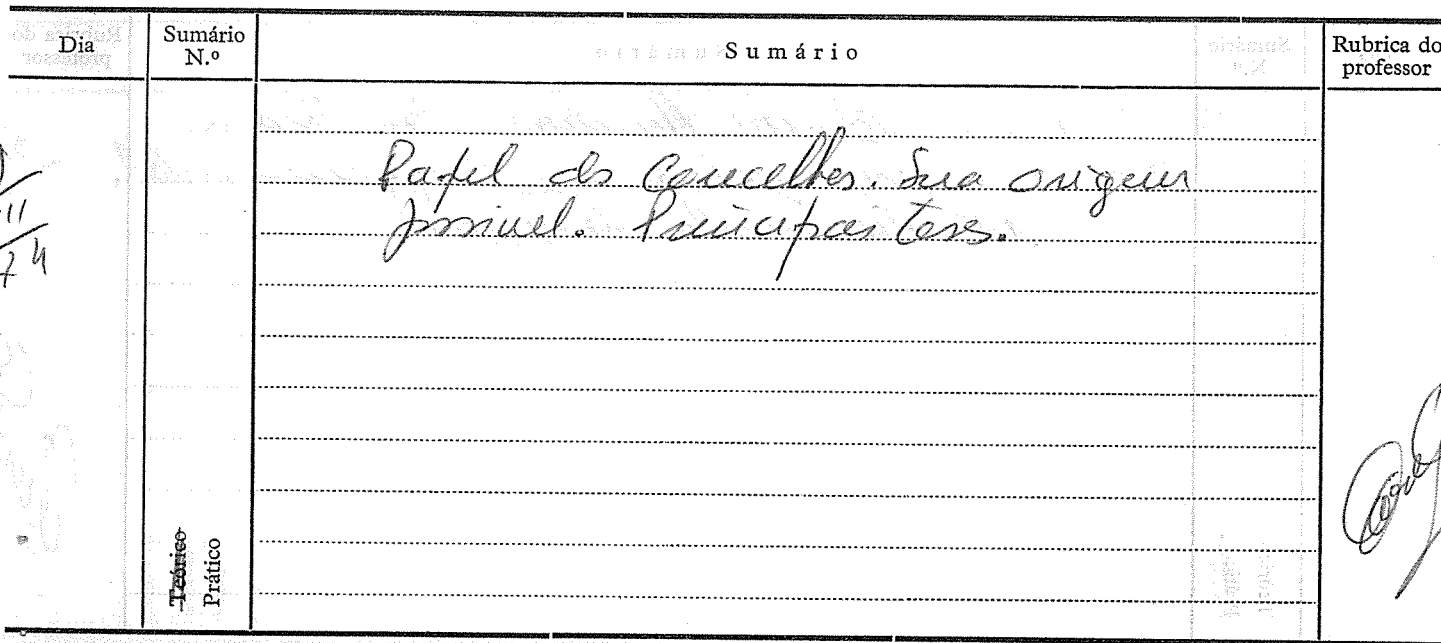 Dia
Sumário N.º
Sumário
Rubrica do professor
Papel dos Concelhos. Sua origem
possivel. Principais teses.
11
74
Teórico
Prático